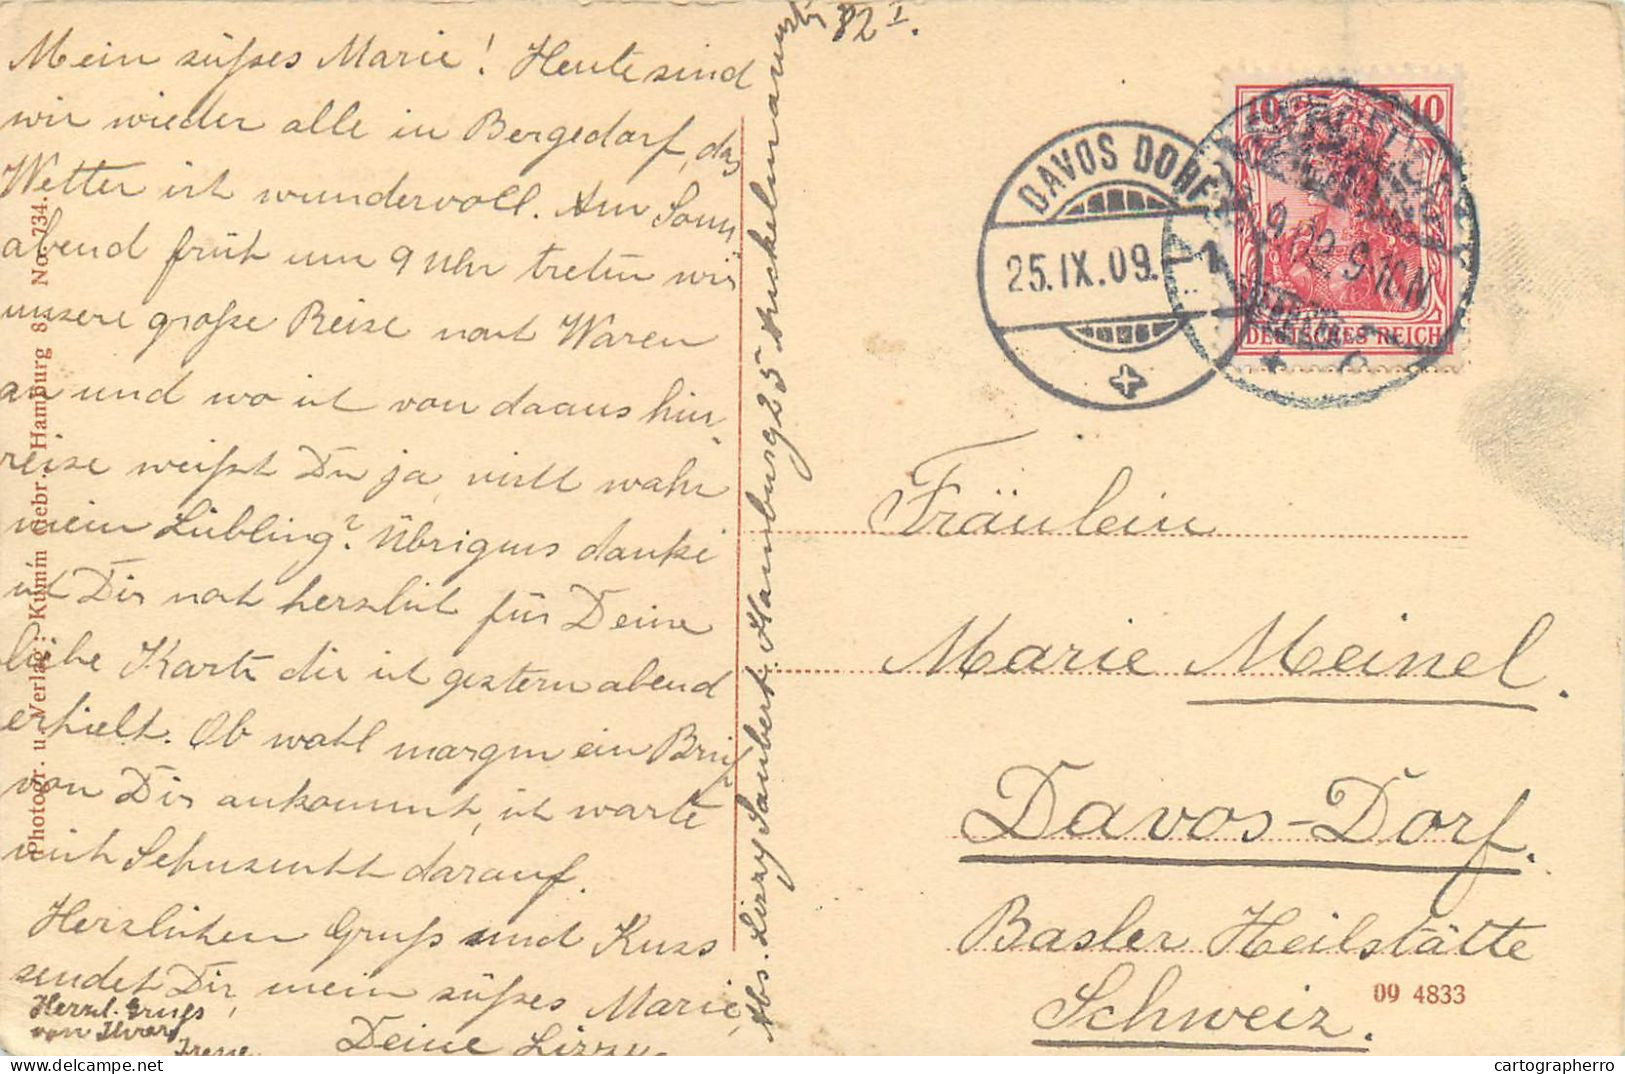 Mein süßes Marie! Heute sind
wir wieder alle in Bergedorf, das
Wetter ist wundervoll. Am Sonn
abend früh um 9 Uhr treten wir
unsere große Reise nach Waren
an und wo ich von da aus hin
reise weißt Du ja, nicht wahr
mein Liebling? Übrigens danke
ich Dir noch herzlich für Deine
liebe Karte die ich gestern abend
erhielt. Ob wohl morgen ein Brief
von Dir ankommt, ich warte
mit Sehnsucht darauf.
Herzlichen Gruß und Kuss
sendet Dir, mein süßes Marie,
Deine Lizzy.
Herzl. Gruß
von Ihrer
Irene
Abs. Lizzy Saubert. Hamburg 25
82 I.
Photogr. u. Verlag: Kumm Gebr. Hamburg 8. No. 734.
DAVOS DORF
25.IX.09.
10 10
DEUTSCHES REICH
Fräulein
Marie Meinel.
Davos-Dorf.
Basler Heilstätte
Schweiz.
09 4833
cartographerro